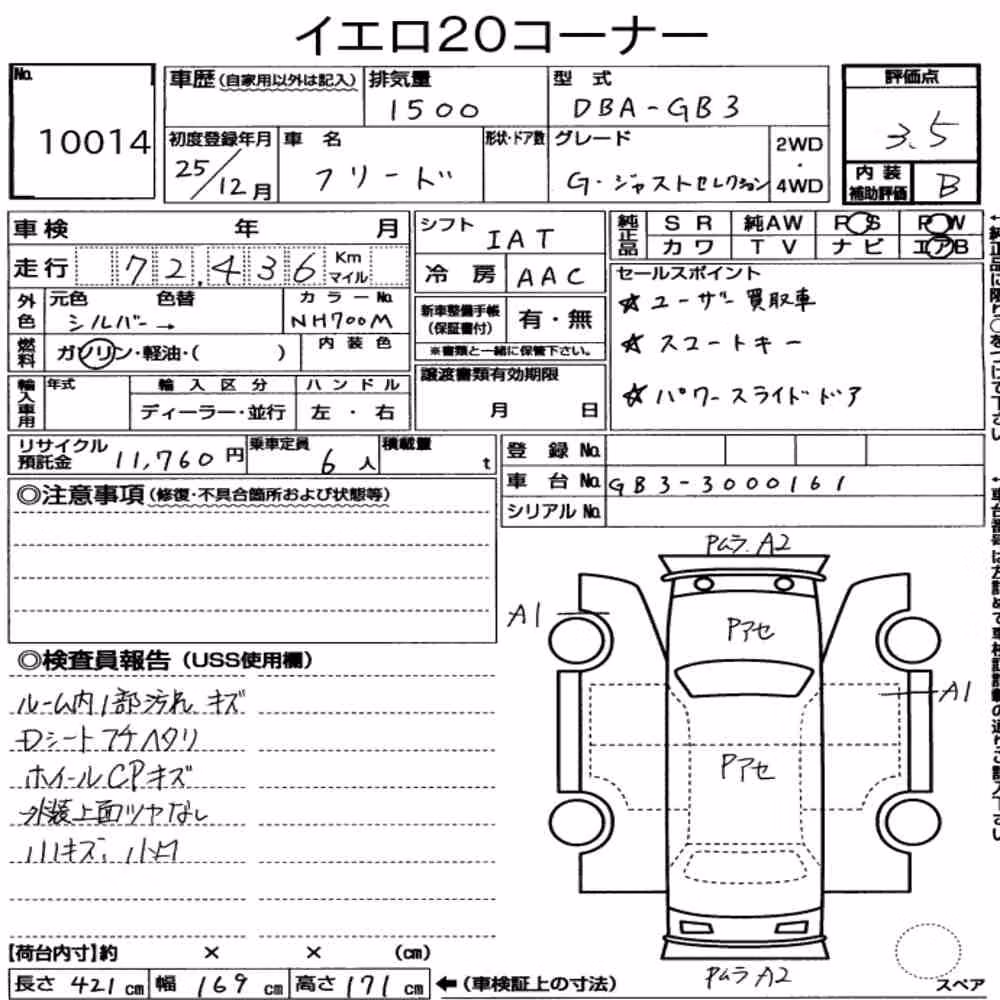 イエロ20コーナー
No.
10014
車歴(自家用以外は記入)
排気量
1500
型 式
DBA-GB3
評価点
3.5
初度登録年月
25/12月
車 名
フリード
形状・ドア数
グレード
G・ジャストセレクション
2WD
・
4WD
内 装
補助評価
B
車検 年 月
シフト
IAT
純正品
S R 純AW P S P W
カワ T V ナビ エアB
走行 72,436 Km マイル
冷 房 AAC
セールスポイント
☆ユーザー買取車
☆スマートキー
☆パワースライドドア
外色
元色 色替
シルバー→
カラーNo.
NH700M
新車整備手帳
(保証書付)
有・無
※書類と一緒に保管下さい。
燃料
ガソリン・軽油・( )
内 装 色
輸入車用
年式
輸 入 区 分
ディーラー・並行
ハ ン ド ル
左 ・ 右
譲渡書類有効期限
月 日
リサイクル
預託金
11,760円
乗車定員
6人
積載量
t
登 録 No.
車 台 No. GB3-3000161
シリアル No.
◎注意事項(修復・不具合箇所および状態等)
PムラA2
A1
Pアセ
A1
Pアセ
PムラA2
◎検査員報告(USS使用欄)
ルーム内1部汚れ キズ
Dシートフチヘタリ
ホイールCPキズ
外装上面ツヤなし
小小キズ、小凹
【荷台内寸】約 × × (cm)
長さ 421 cm 幅 169 cm 高さ 171 cm ←(車検証上の寸法)
スペア